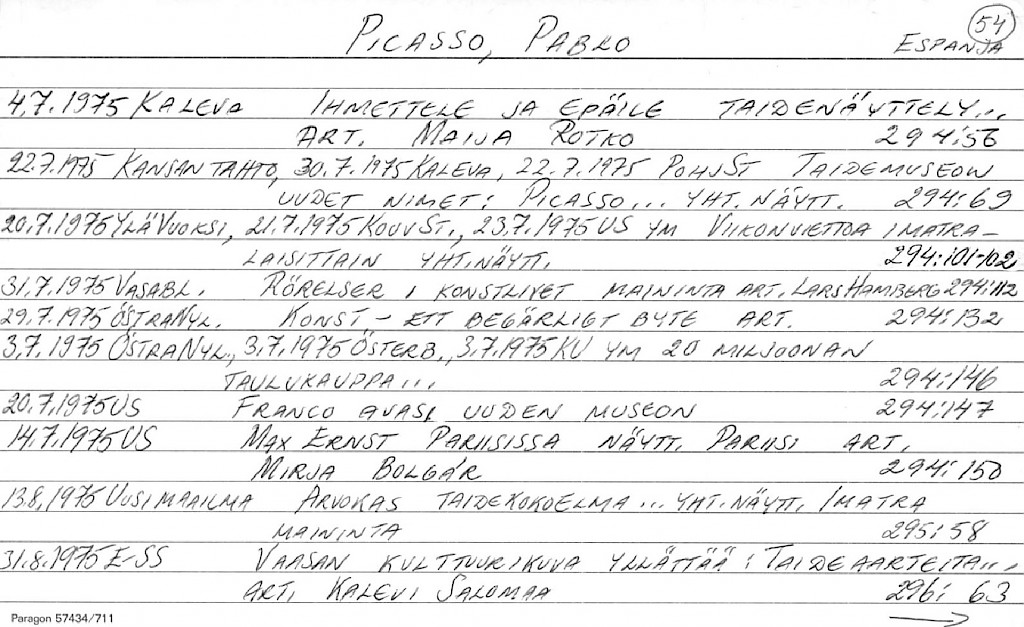 54
PICASSO, PABLO ESPANJA
4.7.1975 KALEVA IHMETTELE JA EPÄILE TAIDENÄYTTELY...
ART. MAIJA ROTKO 294:56
22.7.1975 KANSAN TAHTO, 30.7.1975 KALEVA, 22.7.1975 POHJST TAIDEMUSEON
UUDET NIMET: PICASSO... YHT.NÄYTT. 294:69
20.7.1975 YLÄVUOKSI, 21.7.1975 KOUVST., 23.7.1975 US YM VIIKONVIETTOA IMATRA-
LAISITTAIN YHT.NÄYTT. 294:101-102
31.7.1975 VASABL. RÖRELSER I KONSTLIVET MAININTA ART. LARS HAMBERG 294:112
29.7.1975 ÖSTRANYL. KONST - ETT BEGÄRLIGT BYTE ART. 294:132
3.7.1975 ÖSTRANYL., 3.7.1975 ÖSTERB., 3.7.1975 KU YM 20 MILJOONAN
TAULUKAUPPA... 294:146
20.7.1975 US FRANCO AVASI UUDEN MUSEON 294:147
14.7.1975 US MAX ERNST PARIISISSA NÄYTT. PARIISI ART.
MIRJA BOLGÁR 294:150
13.8.1975 UUSI MAAILMA ARVOKAS TAIDEKOKOELMA... YHT.NÄYTT. IMATRA
MAININTA 295:58
31.8.1975 E-SS VAASAN KULTTUURIKUVA YLLÄTTÄÄ: TAIDEAARTEITA...
ART. KALEVI SALOMAA 296:63
Paragon 57434/711